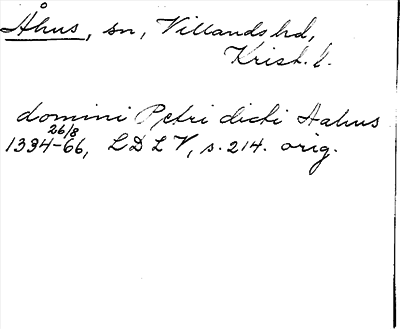 Åhus, sn, Villands hd,
Krist. l.
domini Petri dicti Aahus
26/8
1394-66, LDLV, s. 214. orig.